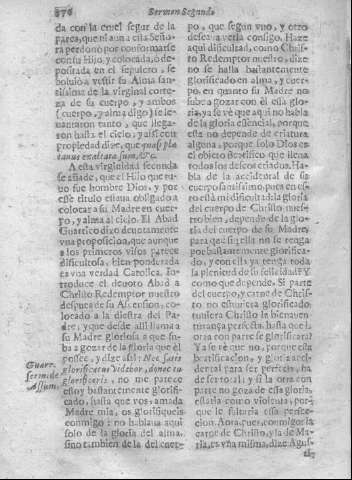 Sermon Segundo
da con la cruel segur de la
parca, que ni aun a esta Seño-
ra perdonó por conformarse
con su Hijo, y colocada, ò de-
positada en el sepulcro, se
bolviò a vestir su Alma san-
tissima de la virginal corteza
de su cuerpo, y ambos
(cuerpo, y alma digo) se le-
vantaron tanto, que llega-
ron hasta el cielo, y assi con
propiedad dize, que quasi pla
tanus exaltata sum, &c.
A esta virginidad fecunda
se añade, que el Hijo que tu-
vo fue hombre Dios, y por
esse titulo estava obligado a
colocar a su Madre en cuer-
po, y alma al cielo. El Abad
Guarrico dixo devotamente
vna proposicion, que aunque
a los primeros visos parece
dificultosa, bien ponderada
es vna verdad Catolica. In-
troduce el devoto Abad a
Christo Redemptor nuestro
despues de su Ascension, co-
locado a la diestra del Pa-
dre; y que desde alli llama a
su Madre gloriosa a que su-
ba a gozar de la gloria que èl
possee, y dize assi: Nec satis
glorificatus videbor, donec tu
glorificeris, no me parece
estoy bastantemente glorifi-
cado, hasta que vos, amada
Madre mia, os glorifiqueis
conmigo: no hablava aqui
solo de la gloria del alma,
sino tambien de la del cuer-
Guarr.
serm. de
Assum.
po, que segun vno, y otro
deseava verla consigo. Haze
aqui dificultad, como Chris-
to Redemptor nuestro, dize
no se halla bastantemente
glorificado en alma, y cuer-
po, en quanto su Madre no
sube a gozar con èl essa glo-
ria, ya se vè que aqui no habla
de la gloria essencial, porque
essa no depende de criatura
alguna, porque solo Dios es
el objeto beatifico que llena
todos los deseos criados. Ha-
bla de la accidental de su
cuerpo santissimo, pues en es-
to està mi dificultad: la gloria
del cuerpo de Christo nues-
tro bien, depende de la glo-
ria del cuerpo de su Madre,
para que sin ella no se tenga
por bastantemente glorifica-
do, y con ella ya tenga toda
la plenitud de su felicidad? Y
como que depende. Si parte
del cuerpo, y carne de Chris-
to no estuviera glorificado,
tuviera Christo la bienaven-
turança perfecta, hasta que la
otra con parte se glorificara?
Ya se vè que no, porque essa
beatificacion, y gloria acci-
dental para ser perfeta, ha
de ser total; y si la otra con
parte no goza de essa gloria,
estaria como violenta, por-
que le faltaria essa perfec-
cion. Aora, pues, conmigo: la
carne de Christo, y la de Ma-
ria, es vna misma, dize Agus-